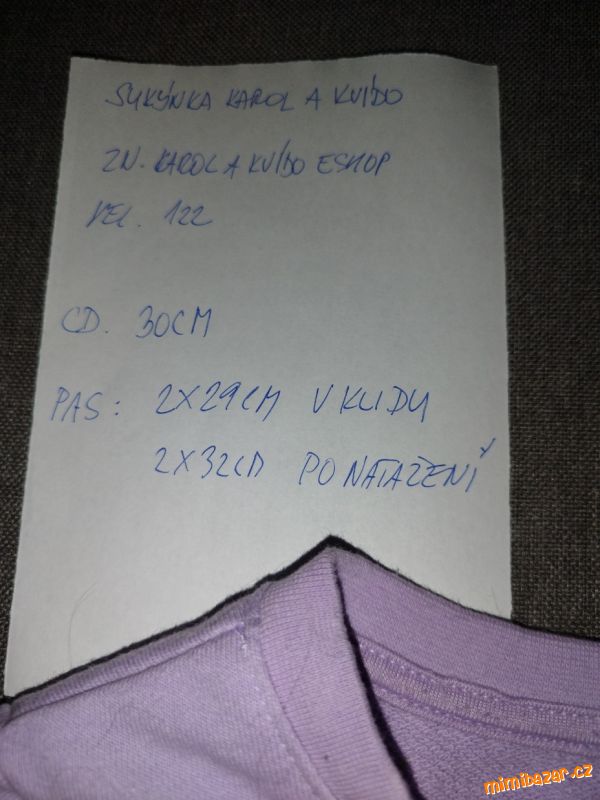 SUKÝNKA KAROL A KVÍDO
ZN. KAROL A KVÍDO ESHOP
VEL. 122
CD. 30CM
PAS: 2X29CM V KLIDU
2X32CM PO NATAŽENÍ
mimibazar.cz